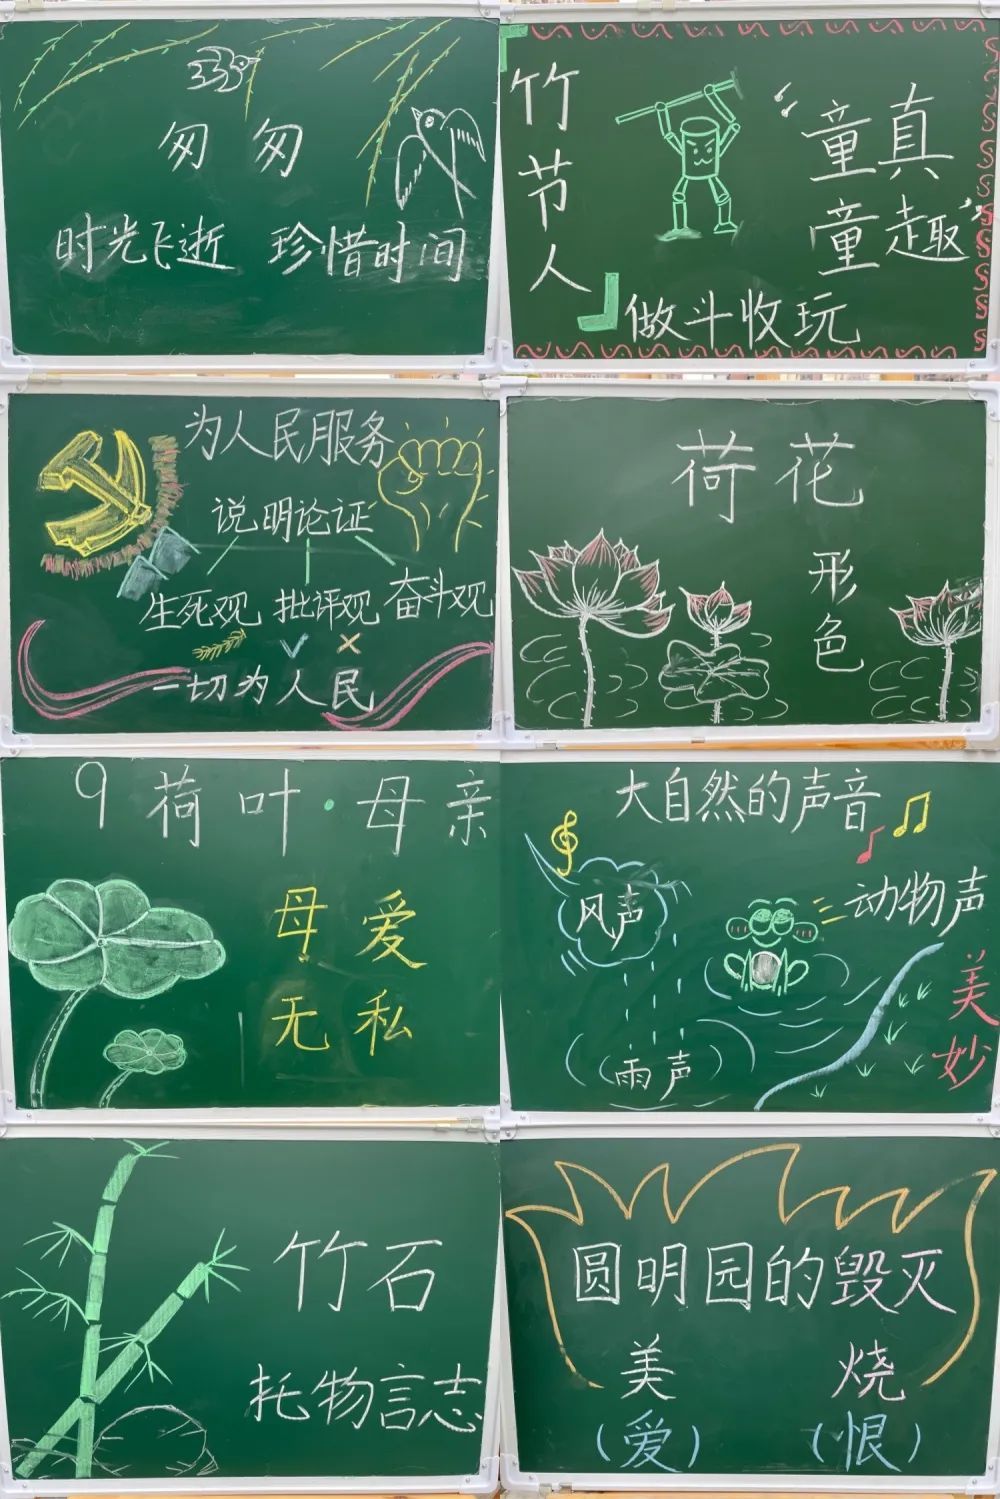 匆匆
时光飞逝 珍惜时间
竹节人
童真
童趣
做斗收玩
为人民服务
说明论证
生死观 批评观 奋斗观
一切为人民
荷花
形色
9 荷叶·母亲
母爱
无私
大自然的声音
风声
动物声
雨声
美妙
竹石
托物言志
圆明园的毁灭
美 烧
(爱) (恨)